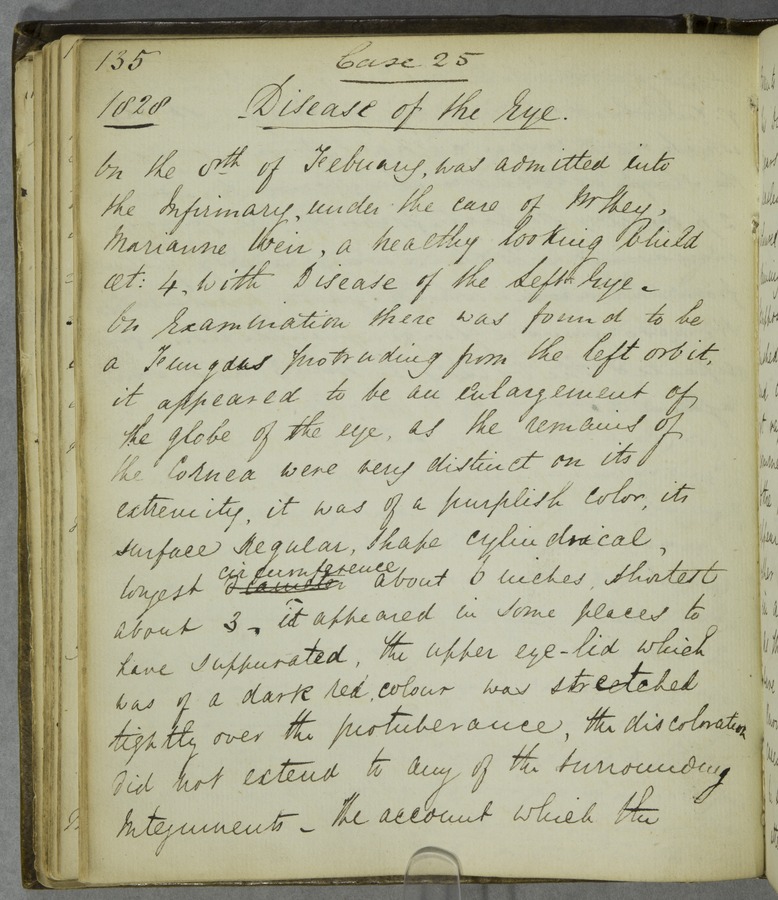 135 Case 25
1828 Disease of the Eye.
On the 8th of Febuary, was admitted into
the Infirmary, under the care of Mr Hey,
Marianne Weir, a healthy looking Child
æt: 4. with Disease of the Left Eye.
On Examination there was found to be
a Fungous protruding from the left orbit,
it appeared to be an enlargement of
the globe of the eye, as the remains of
the Cornea were very distinct on its
extremity, it was of a purplish color, its
surface Regular, shape cylindrical,
circumference
longest diameter about 6 inches, shortest
about 3. it appeared in some places to
have suppurated, the upper eye-lid which
was of a dark red, colour was stretched
tightly over the protuberance, the discoloration
did not extend to any of the surrounding
Integuments - the account which the